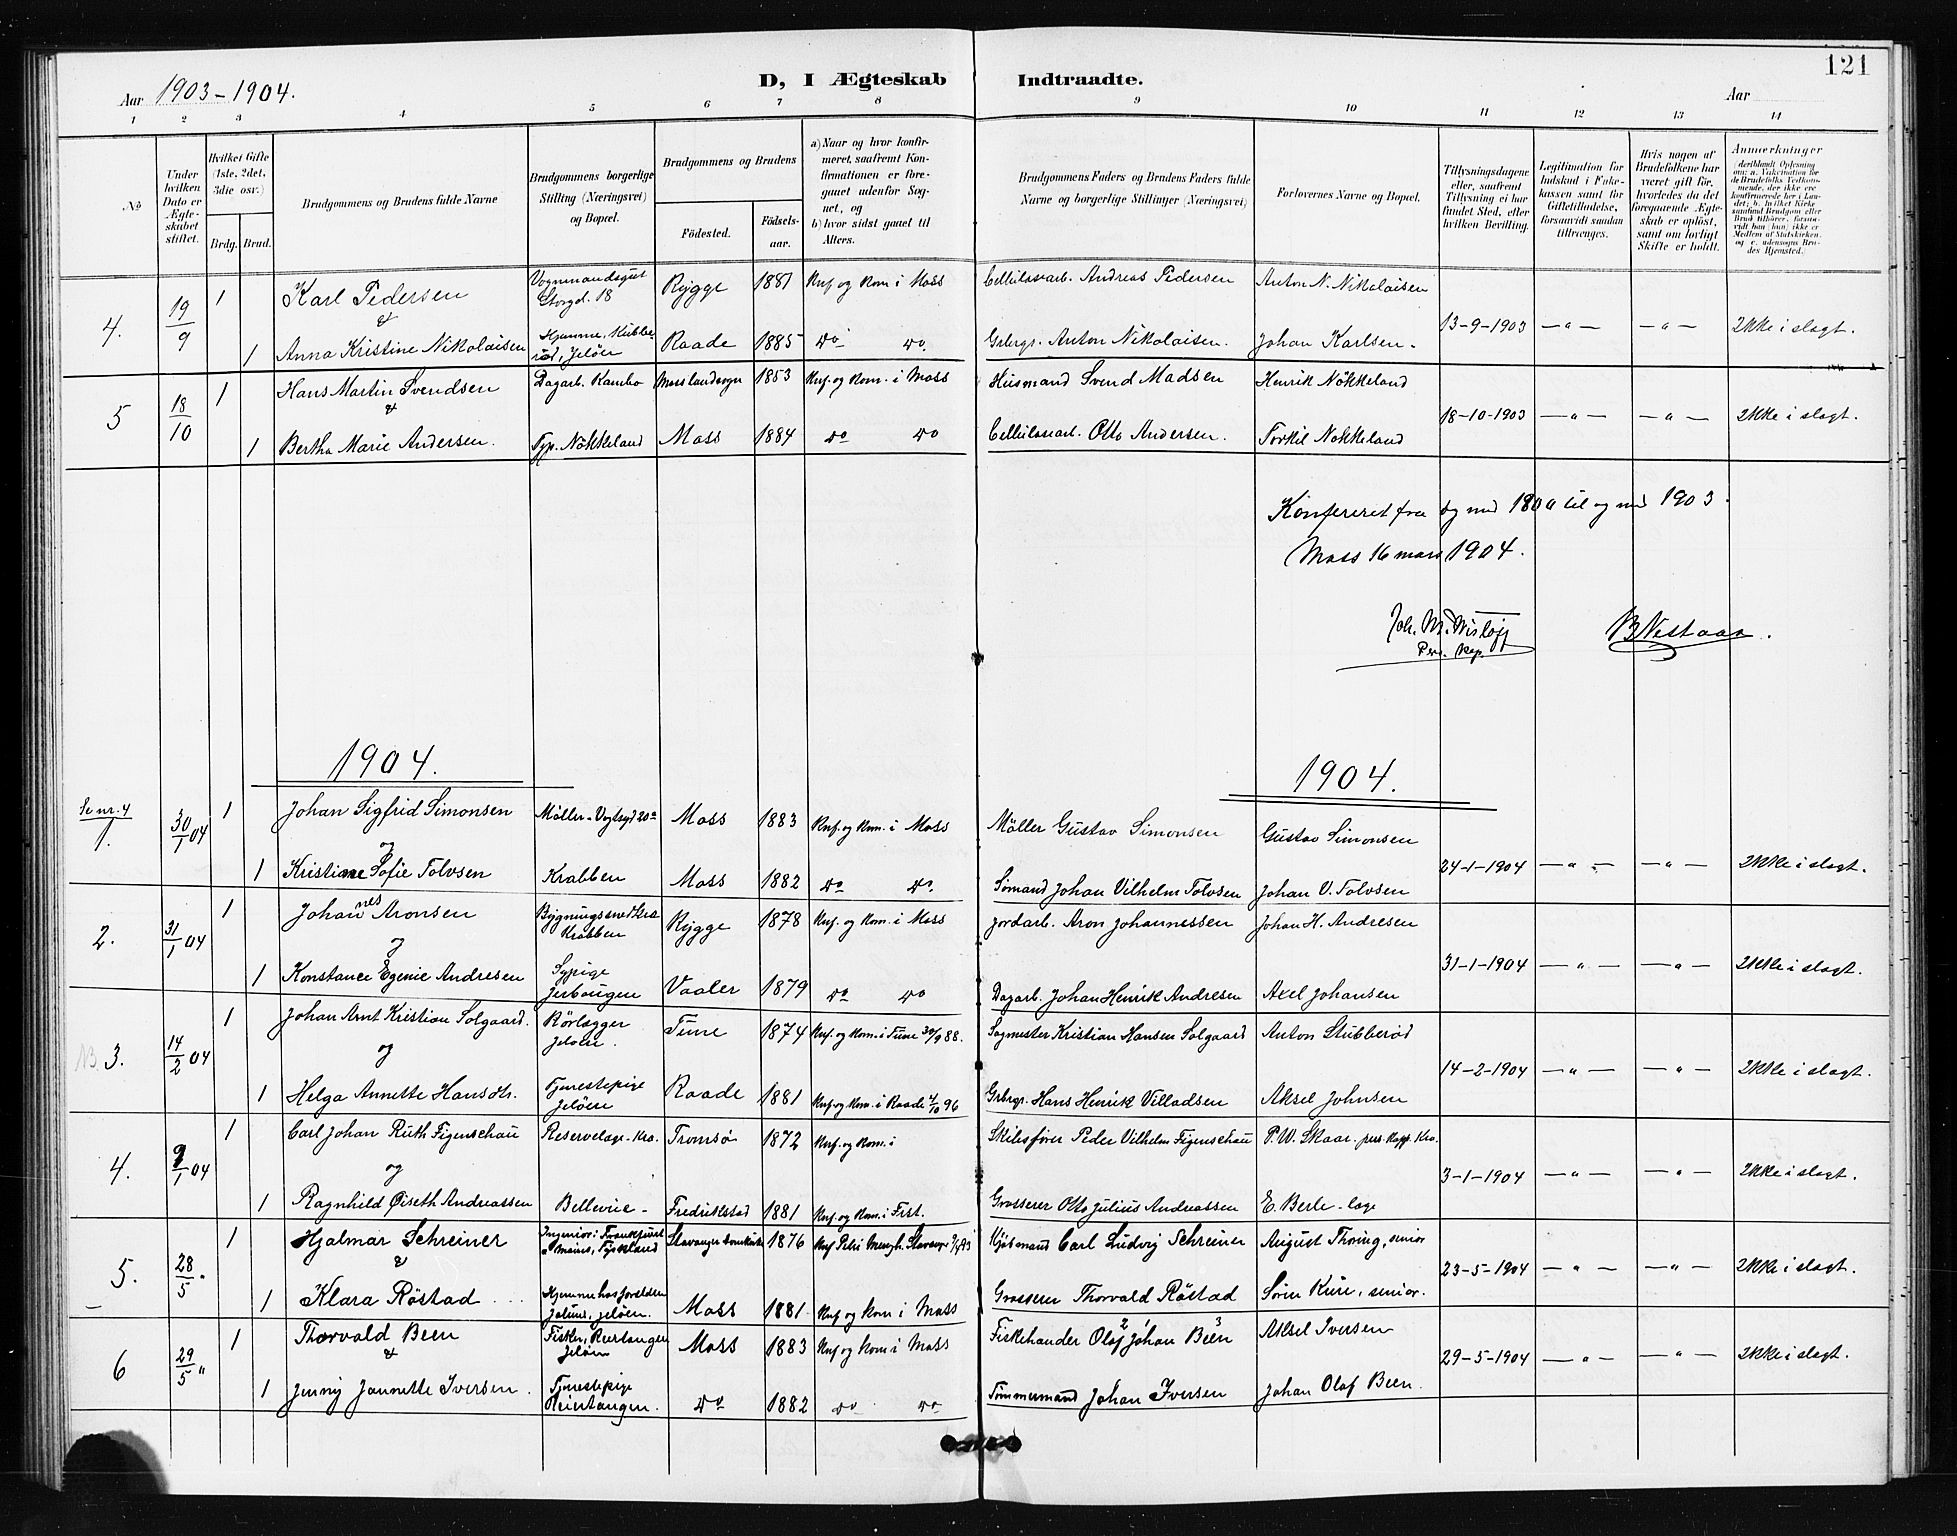 121
Aar 1903-1904.
D, I Ægteskab Indtraadte.
Aar
1 2 3 4 5 6 7 8 9 10 11 12 13 14
No
Under hvilken Dato er Ægteskabet stiftet.
Hvilket Gifte (1ste, 2det, 3die osv.)
Brdg. Brud.
Brudgommens og Brudens fulde Navne
Brudgommens borgerlige Stilling (Næringsvei) og Bopæl.
Brudgommens og Brudens
Fødested. Fødsels-aar.
a) Naar og hvor konfirmeret, saafremt Konfirmationen er foregaaet udenfor Sognet, og
b) hvor sidst gaaet til Alters.
Brudgommens Faders og Brudens Faders fulde Navne og borgerlige Stillinger (Næringsvei)
Forlovernes Navne og Bopæl.
Tillysningsdagene eller, saafremt Tillysning ei har fundet Sted, efter hvilken Bevilling.
Legitimation for Indskud i Enkekassen samt for Giftetilladelse, forsaavidt saadan tiltrænges.
Hvis nogen af Brudefolkene har været gift før, hvorledes da det foregaaende Ægteskab er opløst, samt om lovligt Skifte er holdt.
Anmærkninger
4. 19/9 1 Karl Pedersen Vognmandsgut Storgd. 18 Rygge 1881 Knf og Kom. i Moss Cellulosearb. Andreas Pedersen Anton N. Nikolaisen
&
1 Anna Kristine Nikolaisen Hjemme, Kubberød, Jeløen Raade 1885 Do Do Grbrgs. Anton Nikolaisen. Johan Karlsen. 13-9-1903 — " — — " — Ikke i slægt.
5 18/10 1 Hans Martin Svendsen Dagarb. Kambo Moss landsogn 1853 Knf. og Kom. i Moss Husmand Svend Madsen Henrik Nökkeland
&
1 Bertha Marie Andersen. Typ. Nökkeland Moss 1884 Do Do Cellulosearb. Otto Andersen. Torkil Nökkeland 18-10-1903 — " — — " — Ikke i slægt.
Konfereret fra og med 1900 til og med 1903.
Moss 16 mars 1904.
Joh. M. Wisløff
Pers. Kap.
1904. 1904.
Se nr. 4
1. 30/1 04 1 Johan Sigfrid Simonsen Möller - Vogtsgd 20a Moss 1883 Knf. og Kom. i Moss Möller Gustav Simonsen Gustav Simonsen
og
1 Kristiane Sofie Tolvsen Krabben Moss 1882 Do Do. Sømand Johan Vilhelm Tolvsen Johan V. Tolvsen 24-1-1904 — " — — " — Ikke i slægt.
2. 31/1 04 1 Johannes Aronsen Bygningssnedker Krabben Rygge 1878 Knf. og Kom. i Moss Jordarb. Aron Johannessen Johan H. Andresen
og
1 Konstance Egenie Andresen Sypige Jerbaugen Vaaler 1879 Do Do Dagarb. Johan Henrik Andresen Axel Johansen 31-1-1904 — " — — " — Ikke i slægt.
3. 14/2 04 1 Johan Arnt Kristian Solgaard. Rörlægger Jeløen. Tune 1874 Knf. og Kom. i Tune 30/9 88. Sagmester Kristian Hansen Solgaard Anton Stubberød
og
1 Helga Annette Hansdtr. Tjenestepige Jeløen Raade 1881 Knf. og Kom. i Raade 4/10 96 Grbrgs. Hans Henrik Villadsen Aksel Johnsen 14-2-1904 — " — — " — Ikke i slægt.
4. 9/1 04 1 Carl Johan Ruth Figenschau Reservelæge - Kra. Tromsø 1872 Knf. og Kom. i Skibsfører Peder Vilhelm Figenschau P. W. Skaar. pers. Kap. Kra.
og
1 Ragnhild Øiseth Andreassen Bellevue - Fredrikstad 1881 Knf. og Kom. i Frst. Grosserer Otto Julius Andreassen E. Berle - læge 3-1-1904 — " — — " — Ikke i slægt.
5. 28/5 " 1 Hjalmar Schreiner Ingeniør i Frankfurt a Mains, Tyskland Stavanger domkirke 1876 Knf Petri Menigh. Stavanger Kjøbmand Carl Ludvig Schreiner August Thoring, senior
&
1 Klara Röstad Hjemme hos forældrene, Jeløen. Moss 1881. Knf og Kom i Moss Grosserer Thorvald Röstad Sörin Kure, senior. 23-5-1904 — " — — " — Ikke i slægt.
6 29/5 " 1 Thorvald Been Fisker, Reiertangen Jeløen Moss 1883 Knf og Kom i Moss Fiskehander Olaf 2 Johan 1 Been 3 Aksel Iversen
&
1 Jenny Jannette Iversen. Tjenestepige Reiertangen. Do 1882 Do Do Tömmermand Johan Iversen Johan Olaf Been. 29-5-1904 — " — — " — Ikke i slægt.